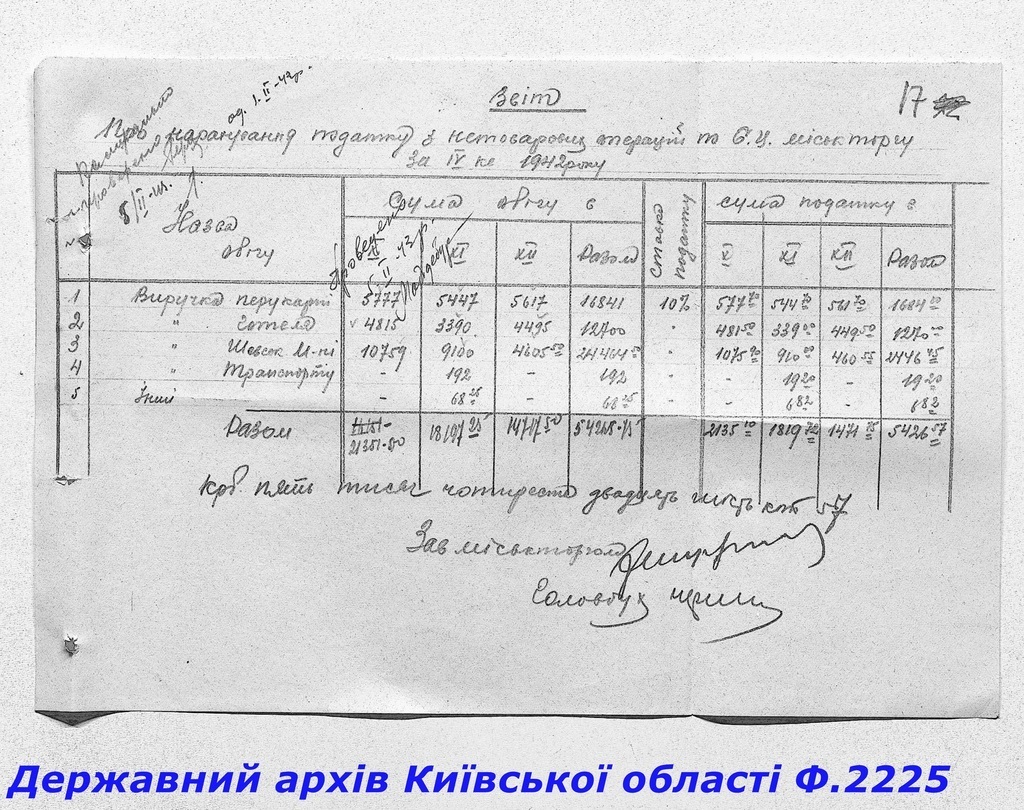 Звіт
17
од. 1.II-42р.
Про нарахування податку з нетоварових операцій по Б.Ц. міськторгу
За IV кв 1942 року
5/II-
Проведено
5.II.43р.
Назва
звіту
Сума звіту в
ставка податку
сума податку в
X XI XII Разом
X XI XII Разом
1 Виручка перукарні 5777 5447 5617 16841 10% 577 70 544 70 561 70 1684 10
2 " Готеля 4815 3390 4495 12700 " 481 50 339 00 449 50 1270 00
3 " Шевськ М-ні 10759 9100 4605 50 24464 50 " 1075 90 910 00 460 55 2446 45
4 " Транспорту - 192 - 192 - 19 20 - 19 20
5 Інші - 68 25 - 68 25 - 6 82 - 6 82
Разом 21351-50 18197 25 14717 50 54265-75 2135 10 1819 72 1471 75 5426 57
Крб. пять тисяч чотириста двадцять шість коп 57
Зав міськторгом
Головбух
Державний архів Київської області Ф.2225